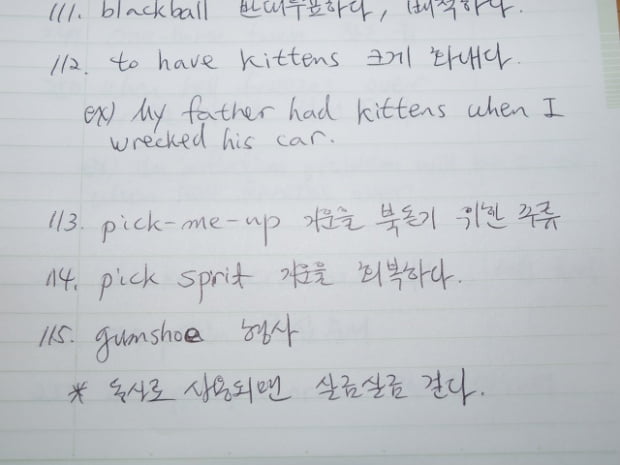 111. blackball 반대투표하다, 배척하다.
112. to have kittens 크게 화내다.
ex) My father had kittens when I
wrecked his car.
113. pick-me-up 기운을 북돋기 위한 주류
114. pick sprit 기운을 회복하다.
115. gumshoe 형사
* 동사로 사용되면 살금살금 걷다.